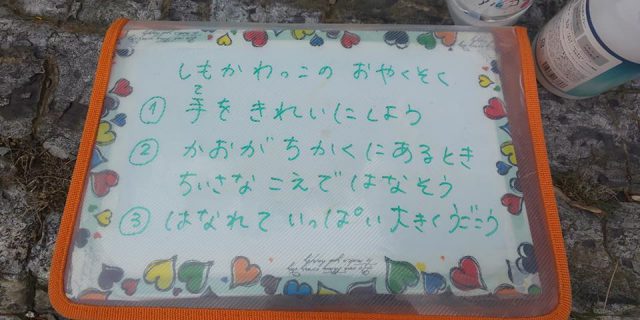 しもかわっこの おやくそく
① 手をきれいにしよう
て
② かおがちかくにあるとき
ちいさなこえではなそう
③ はなれていっぱい大きくうごこう